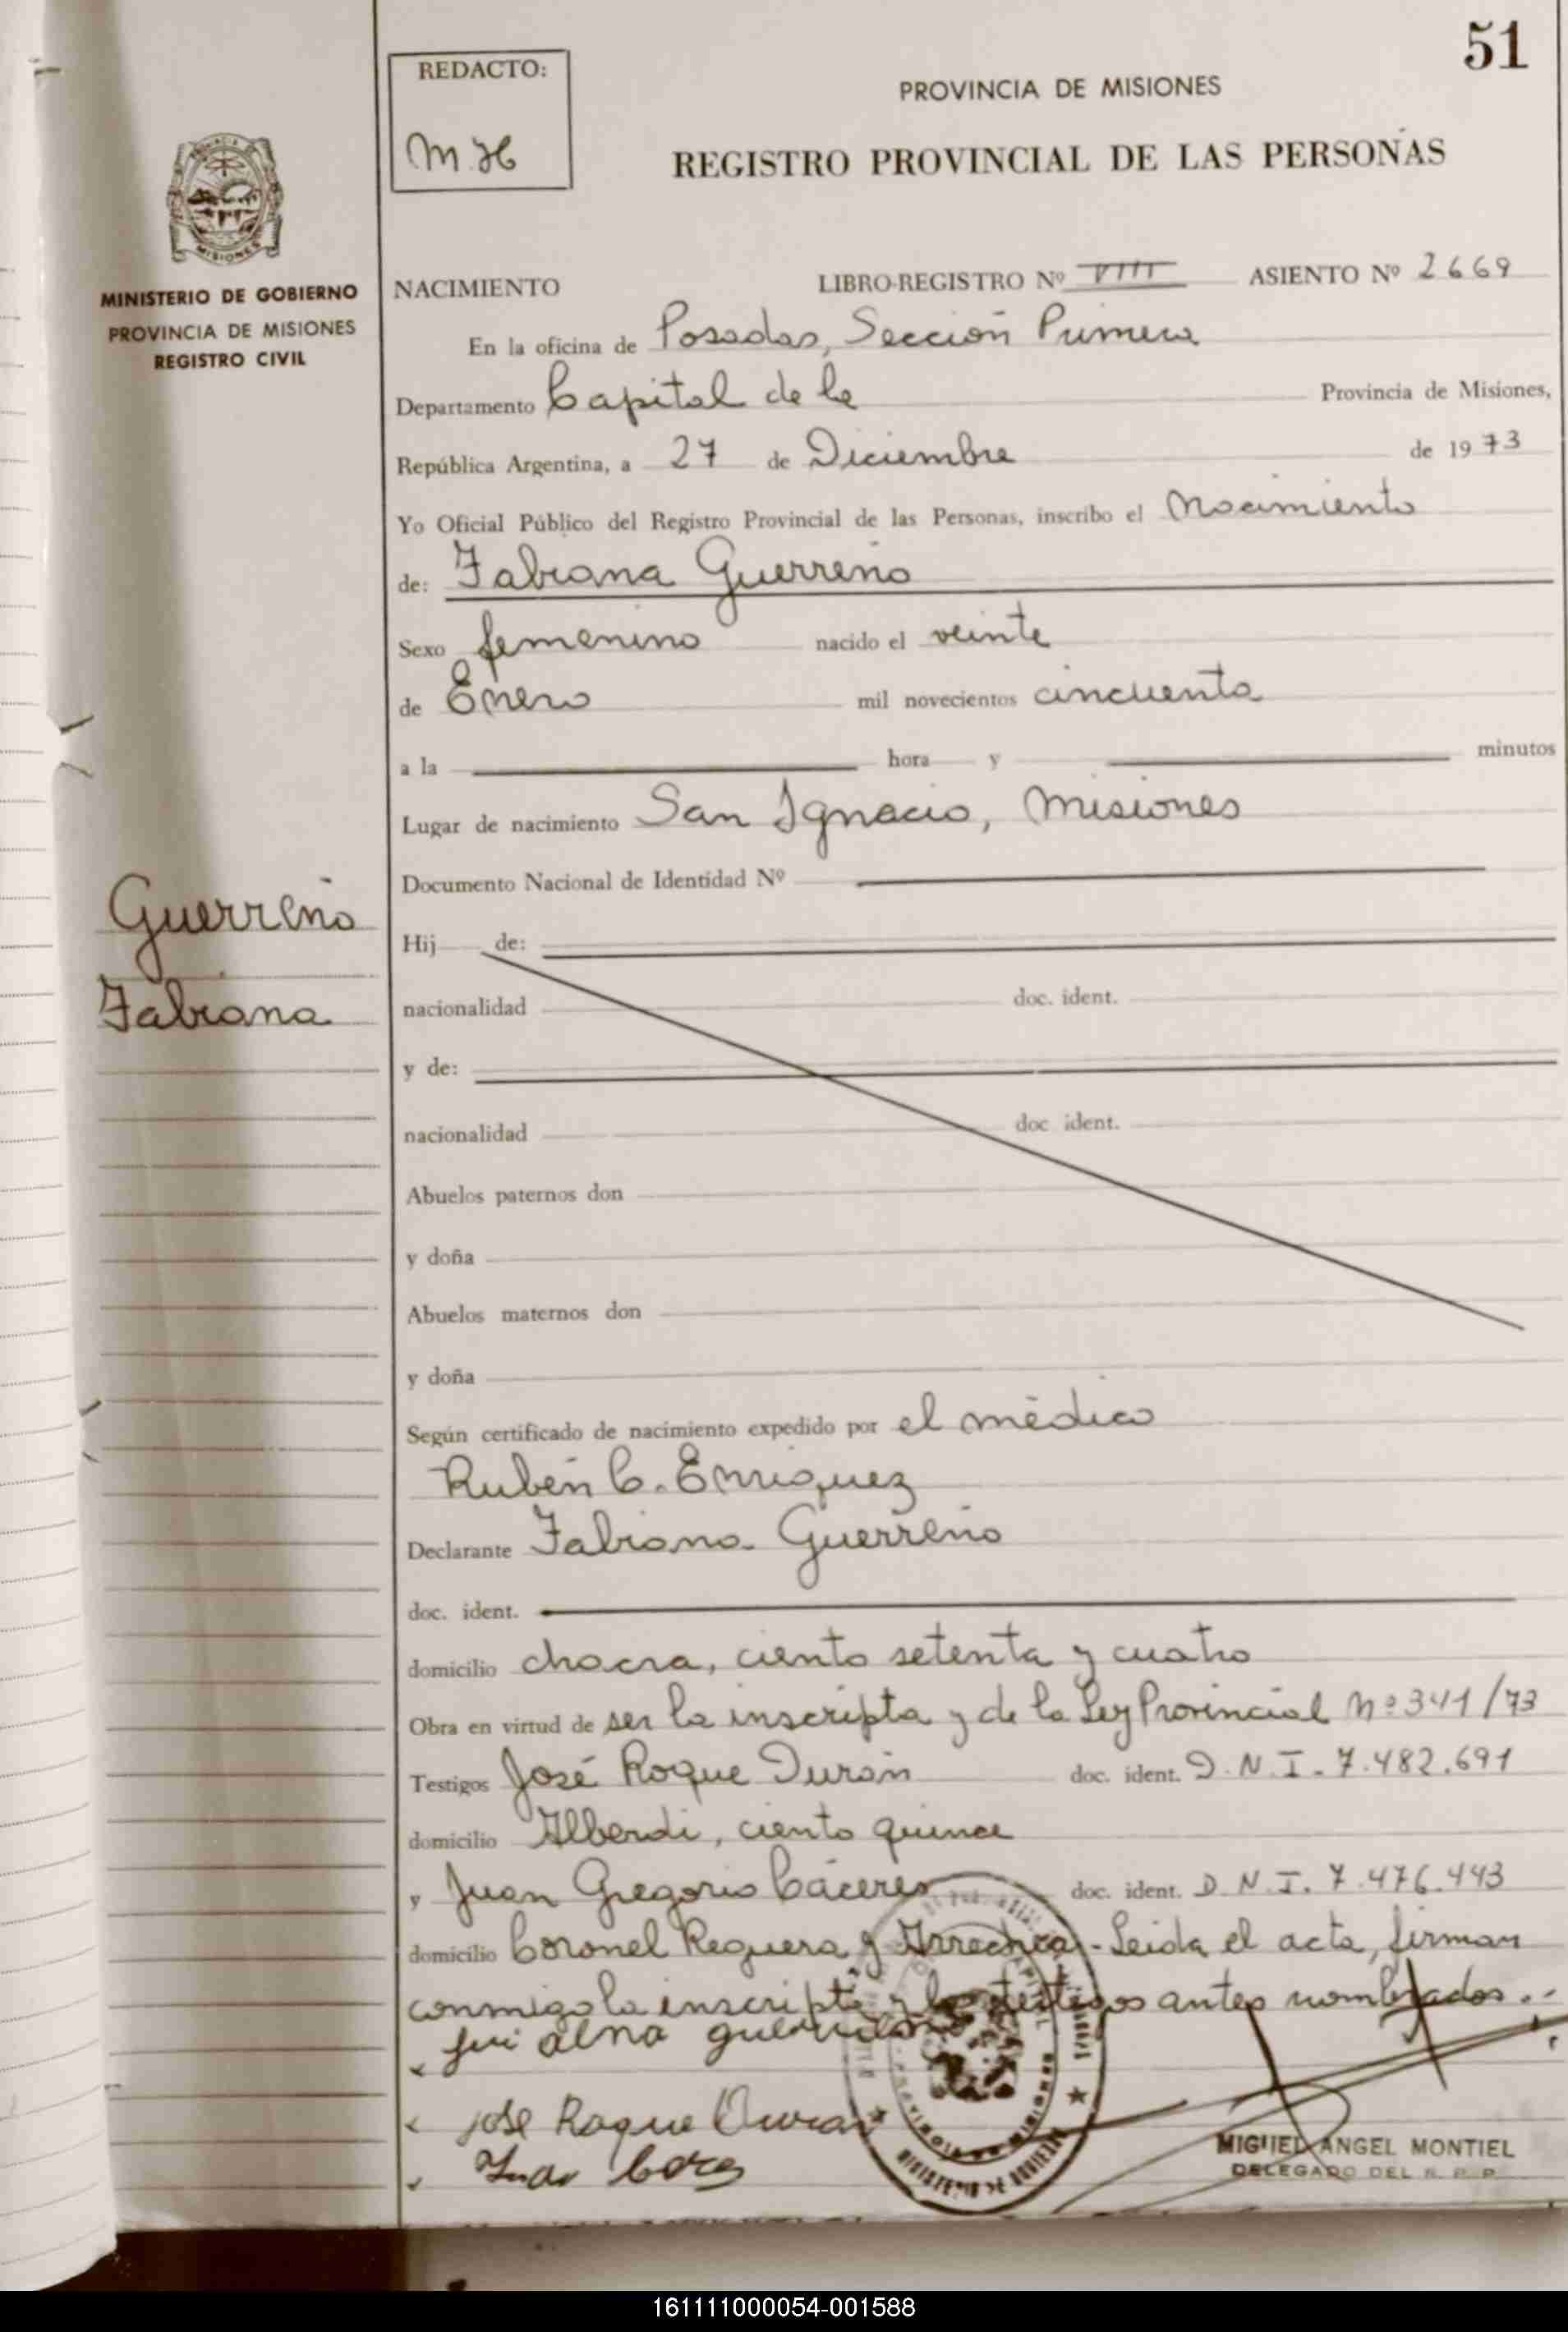 51
REDACTO:
M.H
PROVINCIA DE MISIONES
REGISTRO PROVINCIAL DE LAS PERSONAS
MISIONES
MINISTERIO DE GOBIERNO
PROVINCIA DE MISIONES
REGISTRO CIVIL
NACIMIENTO LIBRO-REGISTRO Nº VIII ASIENTO Nº 2669
En la oficina de Posadas, Sección Primera
Departamento Capital de la Provincia de Misiones,
República Argentina, a 27 de Diciembre de 1973
Yo Oficial Público del Registro Provincial de las Personas, inscribo el Nacimiento
de: Fabiana Guerreño
Sexo femenino nacido el veinte
de Enero mil novecientos cincuenta
a la hora y minutos
Lugar de nacimiento San Ignacio, Misiones
Documento Nacional de Identidad Nº
Guerreño
Fabiana
Hij de:
nacionalidad doc. ident.
y de:
nacionalidad doc ident.
Abuelos paternos don
y doña
Abuelos maternos don
y doña
Según certificado de nacimiento expedido por el médico
Rubén C. Enriquez
Declarante Fabiana Guerreño
doc. ident.
domicilio chacra, ciento setenta y cuatro
Obra en virtud de ser la inscripta y de la Ley Provincial Nº 341/73
Testigos José Roque Durán doc. ident. D.N.I. 7.482.691
domicilio Alberdi, ciento quince
y Juan Gregorio Cáceres doc. ident. D.N.I. 7.476.443
domicilio Coronel Reguera y Arrechea - Leída el acta, firman
conmigo la inscripta y los testigos antes nombrados..
José Roque Duran
MIGUEL ANGEL MONTIEL
DELEGADO DEL R. P. P.
MINISTERIO DE GOBIERNO
161111000054-001588